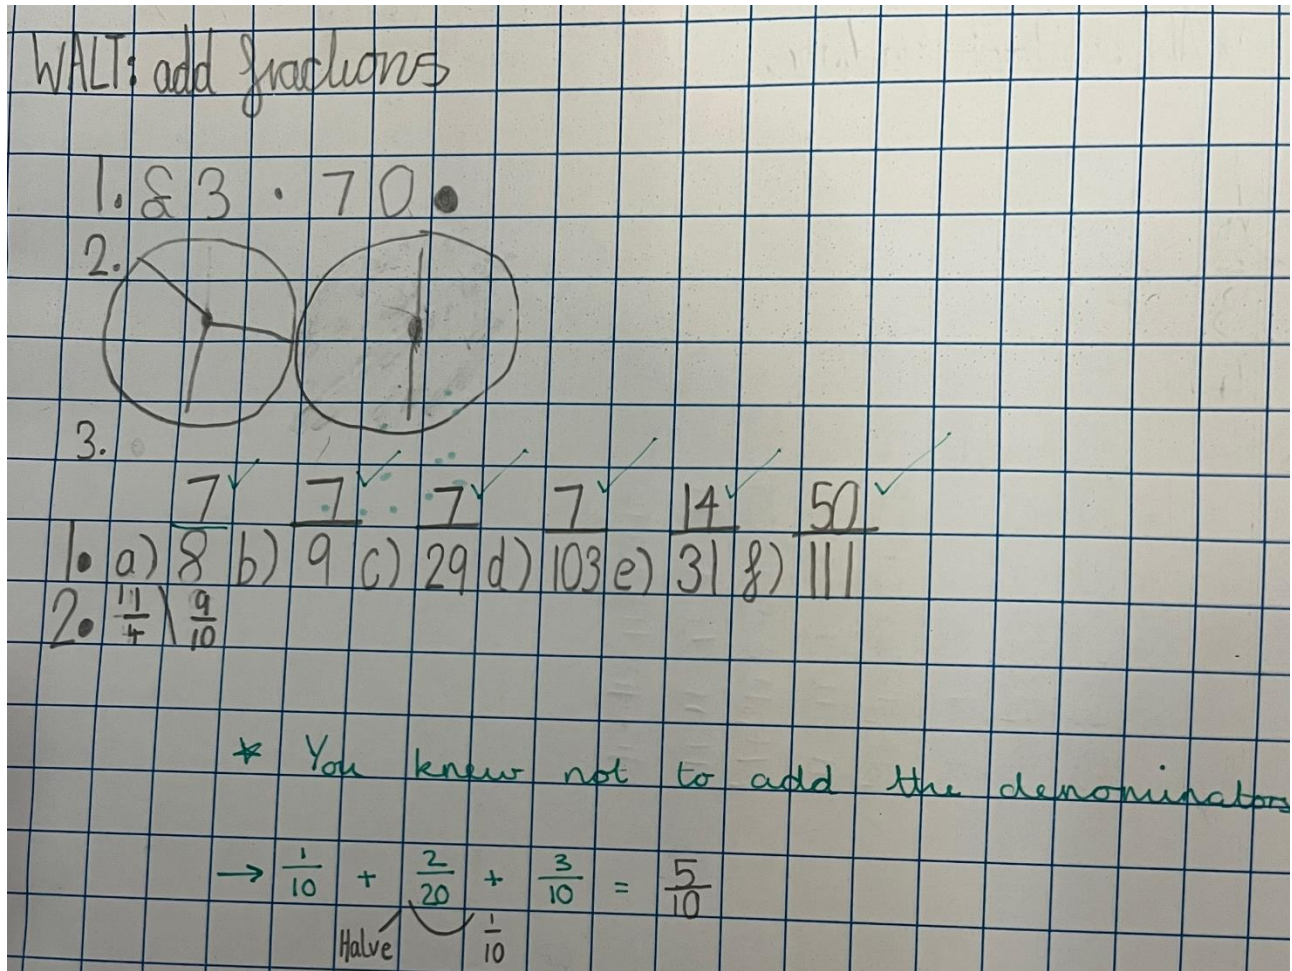 WALT: add fractions
1. £3.70.
2.
3.
1. a) 7/8 b) 7/9 c) 7/29 d) 7/103 e) 14/31 f) 50/111
2. 11/4 \ 9/10
* You knew not to add the denominators
→ 1/10 + 2/20 + 3/10 = 5/10
Halve 1/10